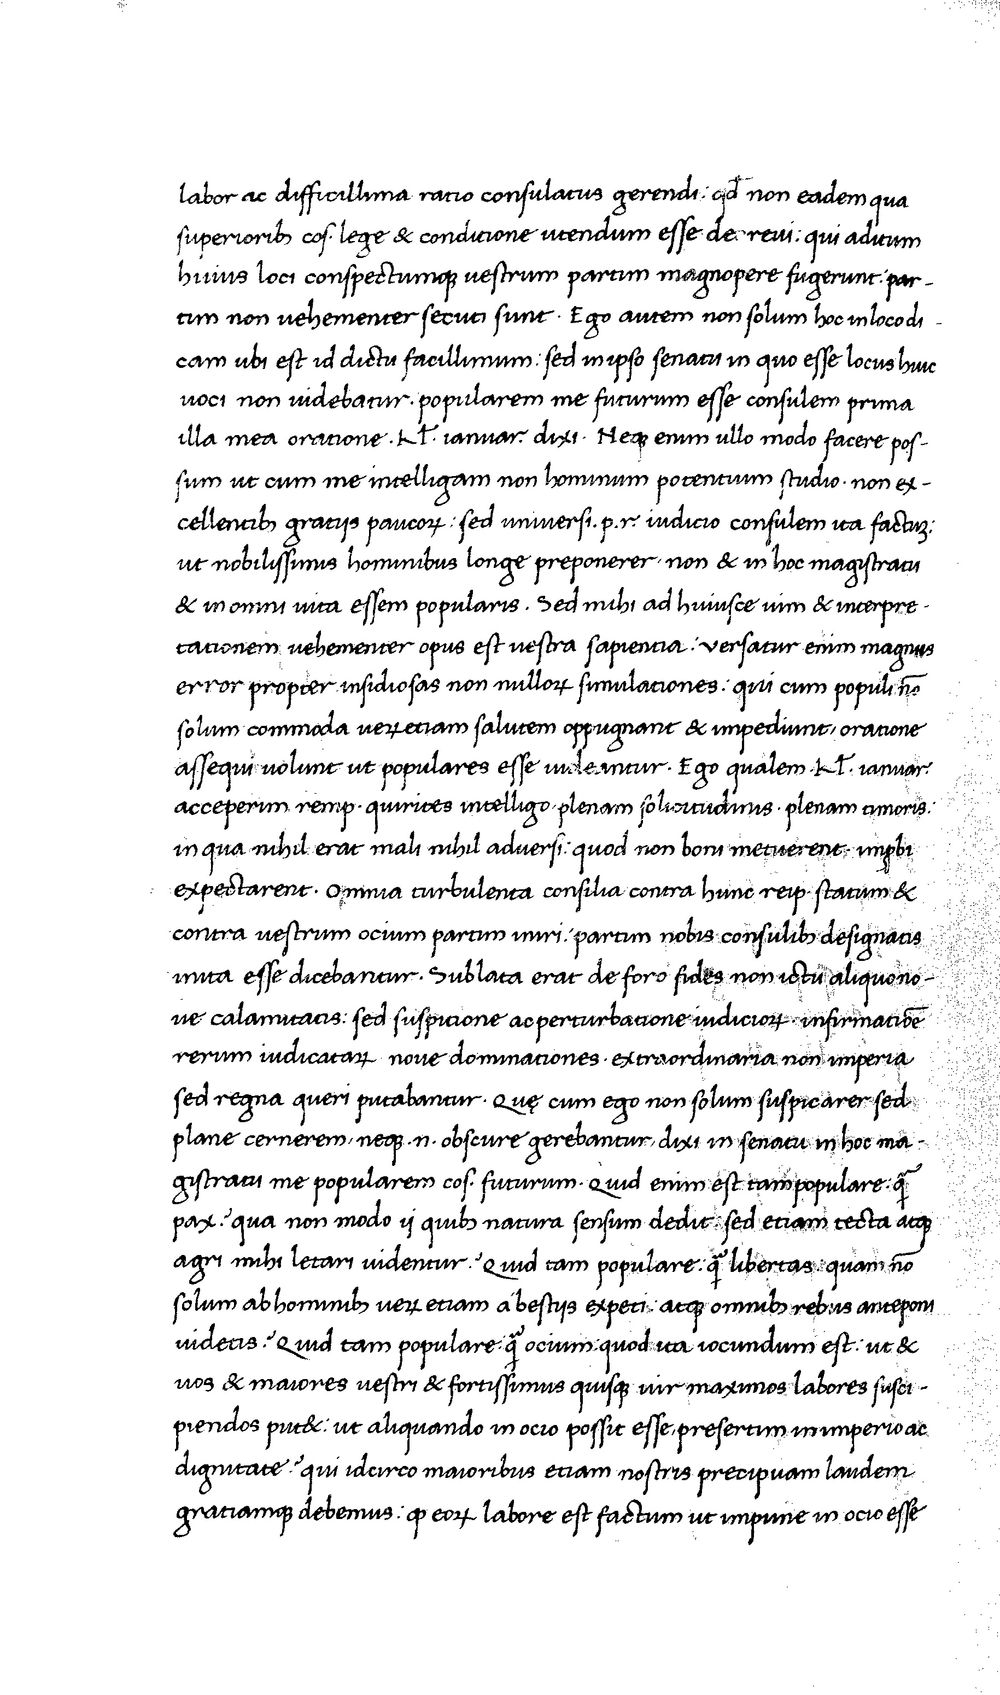 labor ac difficillima ratio consulatus gerendi: qd̄ non eadem qua
superiorib; cos. lege & conditione utendum esse decreui: qui aditum
huius loci conspectumq; uestrum partim magnopere fugerunt: par-
tim non uehementer secuti sunt. Ego autem non solum hoc in loco di-
cam ubi est id dictu facillimum: sed in ipso senatu in quo esse locus huic
uoci non uidebatur. popularem me futurum esse consulem prima
illa mea oratione. Kl̄. ianuar. dixi. Neq; enim ullo modo facere pos-
sum ut cum me intelligam non hominum potentium studio. non ex-
cellentib; gratijs paucoꝝ: sed uniuersi .p.r. iudicio consulem ita factuz:
ut nobilissimis hominibus longe preponerer. non & in hoc magistratu
& in omni uita essem popularis. Sed mihi ad huiusce uim & interpre-
tationem uehementer opus est uestra sapientia: Versatur enim magnus
error propter insidiosas non nulloꝝ simulationes: qui cum populi nō
solum commoda ueꝝ etiam salutem oppugnant & impediunt, oratione
assequi uolunt ut populares esse uideantur. Ego qualem .Kl̄. ianuar.
acceperim remp. quirites intelligo. plenam solicitudinis. plenam timoris:
in qua nihil erat mali nihil aduersi: quod non boni metuerent. imꝓbi
expectarent. Omnia turbulenta consilia contra hunc reip. statum &
contra uestrum ocium partim iniri: partim nobis consulib; designatis
inita esse dicebantur. Sublata erat de foro fides non ictu aliquo no-
ue calamitatis: sed suspitione ac perturbatione iudicioꝝ. infirmatiōe
rerum iudicataꝝ noue dominationes. extraordinaria non imperia
sed regna queri putabantur. Quę cum ego non solum suspicarer sed
plane cernerem. neq; .n. obscure gerebantur, dixi in senatu in hoc ma-
gistratu me popularem cos. futurum. Quid enim est tam populare: q̄
pax? qua non modo ij quib; natura sensum dedit: sed etiam tecta atq;
agri mihi letari uidentur? Quid tam populare: q̄ libertas: quam nō
solum ab hominib; ueꝝ etiam a bestijs expeti: atq; omnib; rebus anteponi
uidetis? Quid tam populare: q̄ ocium: quod ita iocundum est: ut &
uos & maiores uestri & fortissimus quisq; uir maximos labores susci-
piendos put&: ut aliquando in ocio possit esse, presertim in imperio ac
dignitate? qui idcirco maioribus etiam nostris precipuam laudem
gratiamq; debemus: ꝙ eoꝝ labore est factum ut impune in ocio esse